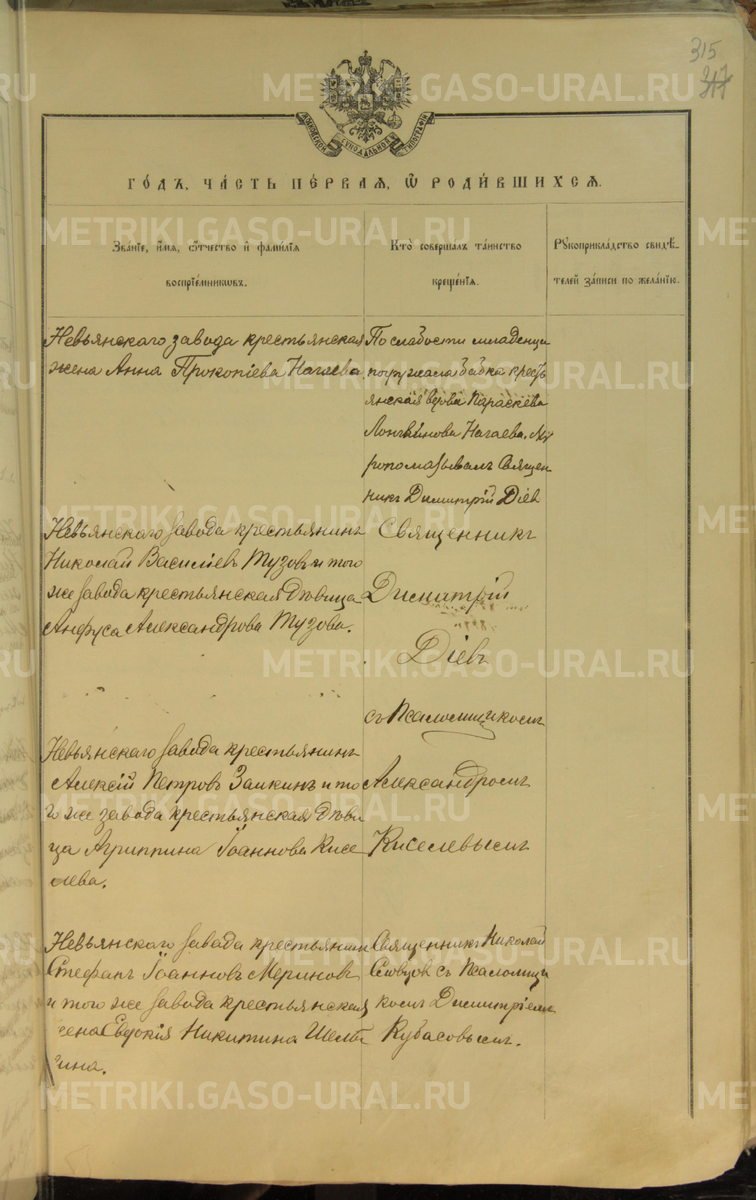 315
317
МОСКОВСКОЙ СѴНОДАЛЬНОЙ ТИПОГРАФІИ
ГОДЪ, ЧАСТЬ ПЕРВАЯ, Ѡ РОДИВШИХСЯ.
Званіе, имя, отчество и фамилія
воспріемниковъ.
Кто совершалъ таинство
крещенія.
Рукоприкладство свидѣ-
телей записи по желанію.
Невьянскаго завода крестьянская
жена Анна Прокопіева Нагаева
По слабости младенца
погружала бабка кресть
янская вдова Параскева
Нагаева. Му
ропомазывалъ Священ
никъ Димитрій Діевъ
Невьянскаго завода крестьянинъ
Николай Василіевъ Тузовъ и того
же завода крестьянская дѣвица
Анфуса Александрова Тузова.
Священникъ
Димитрій
Діевъ
съ Псаломщикомъ
Александромъ
Киселевымъ
Невьянскаго завода крестьянинъ
Алексій Петровъ Заикинъ и то
го же завода крестьянская дѣви
ца Агриппина Іоаннова Кисе
лева.
Невьянскаго завода крестьянинъ
Стефанъ Іоанновъ Мериновъ
и того же завода крестьянская
жена Евдокія Никитина
гина.
Священникъ Николай
Словцовъ съ Псаломщи
комъ Димитріемъ
Кубасовымъ.
METRIKI.GASO-URAL.RU